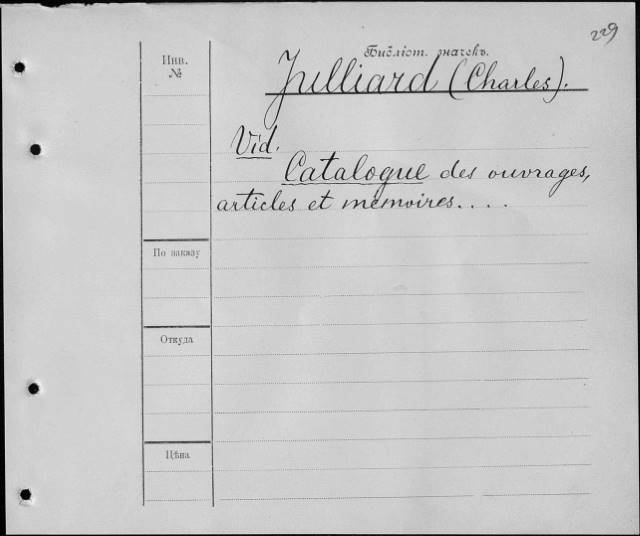 229
Библіот. значекъ.
Инв.
№
Julliard (Charles).
Vid.
Catalogue des ouvrages,
articles et mémoires....
По заказу
Откуда
Цѣна